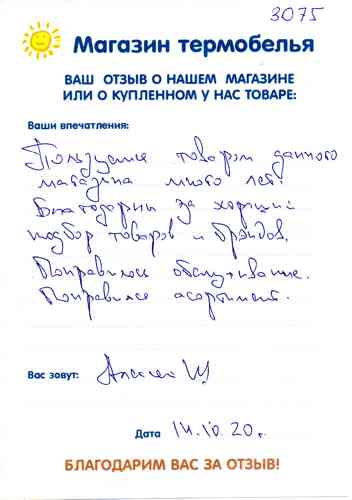 3075
Магазин термобелья
ВАШ ОТЗЫВ О НАШЕМ МАГАЗИНЕ
ИЛИ О КУПЛЕННОМ У НАС ТОВАРЕ:
Ваши впечатления:
Пользуемся товаром данного
магазина много лет.
Благодарны за хороший
подбор товаров и брэндов.
Понравилось обслуживание.
Понравился асортимент.
Вас зовут: Алексей Ш
Дата 14.10.20 г.
БЛАГОДАРИМ ВАС ЗА ОТЗЫВ!